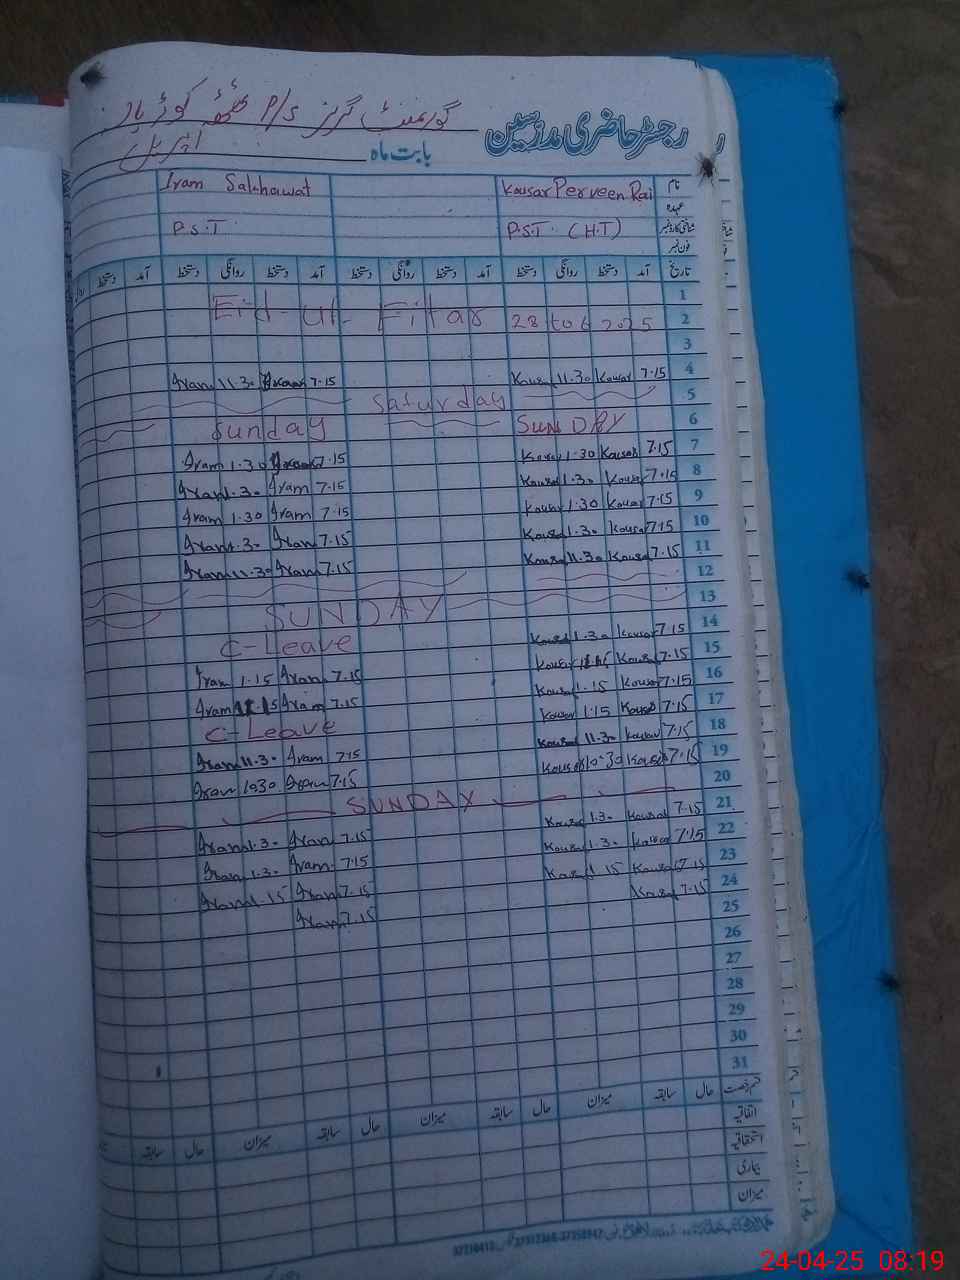 گورنمنٹ گرلز P/S
رجسٹر حاضری مدرسین
بابت ماہ اپریل
نام Kousar Perveen Rai Iram Sakhawat
عہدہ
شناختی کارڈ نمبر P.S.T (H.T) P.S.T
فون نمبر
تاریخ آمد دستخط روانگی دستخط آمد دستخط روانگی دستخط آمد دستخط روانگی دستخط آمد دستخط
1
2 Eid-ul-Fitar 28 to 6 2025
3
4 Iram 11.30 7.15 Kousar 11.30 Kousar 7.15
5 Saturday
6 Sunday SUNDAY
7 Iram 1.30 7.15 Kousar 1.30 Kousar 7.15
8 Iram 1.30 Iram 7.15 Kousar 1.30 Kousar 7.15
9 Iram 1.30 Iram 7.15 Kousar 1.30 Kousar 7.15
10 Iram 1.30 Iram 7.15 Kousar 1.30 Kousar 7.15
11 Iram 11.30 Iram 7.15 Kousar 11.30 Kousar 7.15
12
13 SUNDAY
14 C-Leave Kousar 1.30 Kousar 7.15
15 Iram 1.15 Iram 7.15 Kousar Kousar 7.15
16 Iram Iram 7.15 Kousar 1.15 Kousar 7.15
17 C-Leave Kousar 1.15 Kousar 7.15
18 Iram 11.30 Iram 7.15 Kousar 11.30 Kousar 7.15
19 Iram 10.30 Iram 7.15 Kousar 10.30 Kousar 7.15
20 SUNDAY
21 Iram 1.30 Iram 7.15 Kousar 1.30 Kousar 7.15
22 Iram 1.30 Iram 7.15 Kousar 1.30 Kousar 7.15
23 Iram 1.15 Iram 7.15 Kousar 1.15 Kousar 7.15
24 Iram 7.15 Kousar 7.15
25
26
27
28
29
30
31
قسم رخصت حال سابقہ میزان حال سابقہ میزان حال سابقہ میزان حال سابقہ
اتفاقیہ
استحقاقیہ
بیماری
میزان
24-04-25 08:19